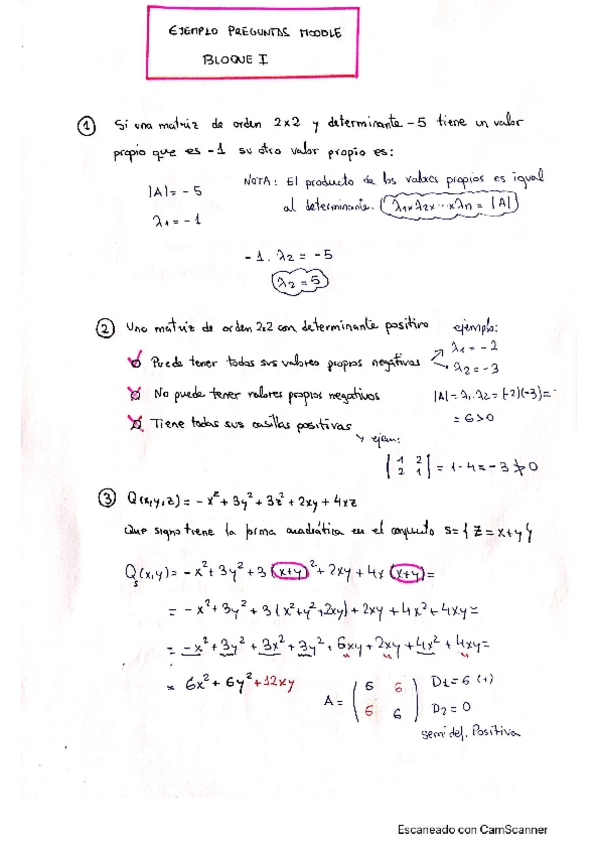 EJEMPLO PREGUNTAS MOODLE
BLOQUE I
① Si una matriz de orden 2x2 y determinante -5 tiene un valor
propio que es -1 su otro valor propio es:
|A| = -5
λ1 = -1
NOTA: El producto de los valores propios es igual
al determinante. λ1×λ2×...×λn = |A|
-1 · λ2 = -5
λ2 = 5
② Una matriz de orden 2x2 con determinante positivo
Puede tener todos sus valores propios negativos
No puede tener valores propios negativos
Tiene todas sus casillas positivas
ejemplo:
λ1 = -2
λ2 = -3
|A| = λ1·λ2 = (-2)(-3) =
= 6 > 0
y ejem:
|1 2|
|2 1| = 1-4 = -3 ≯ 0
③ Q(x,y,z) = -x² + 3y² + 3z² + 2xy + 4xz
Que signo tiene la forma cuadrática en el conjunto S={z=x+y}
Qs(x,y) = -x² + 3y² + 3(x+y)² + 2xy + 4x(x+y) =
= -x² + 3y² + 3(x²+y²+2xy) + 2xy + 4x² + 4xy =
= -x² + 3y² + 3x² + 3y² + 6xy + 2xy + 4x² + 4xy =
= 6x² + 6y² + 12xy
A = (6 6
6 6)
D1 = 6 (+)
D2 = 0
semi def. Positiva
Escaneado con CamScanner